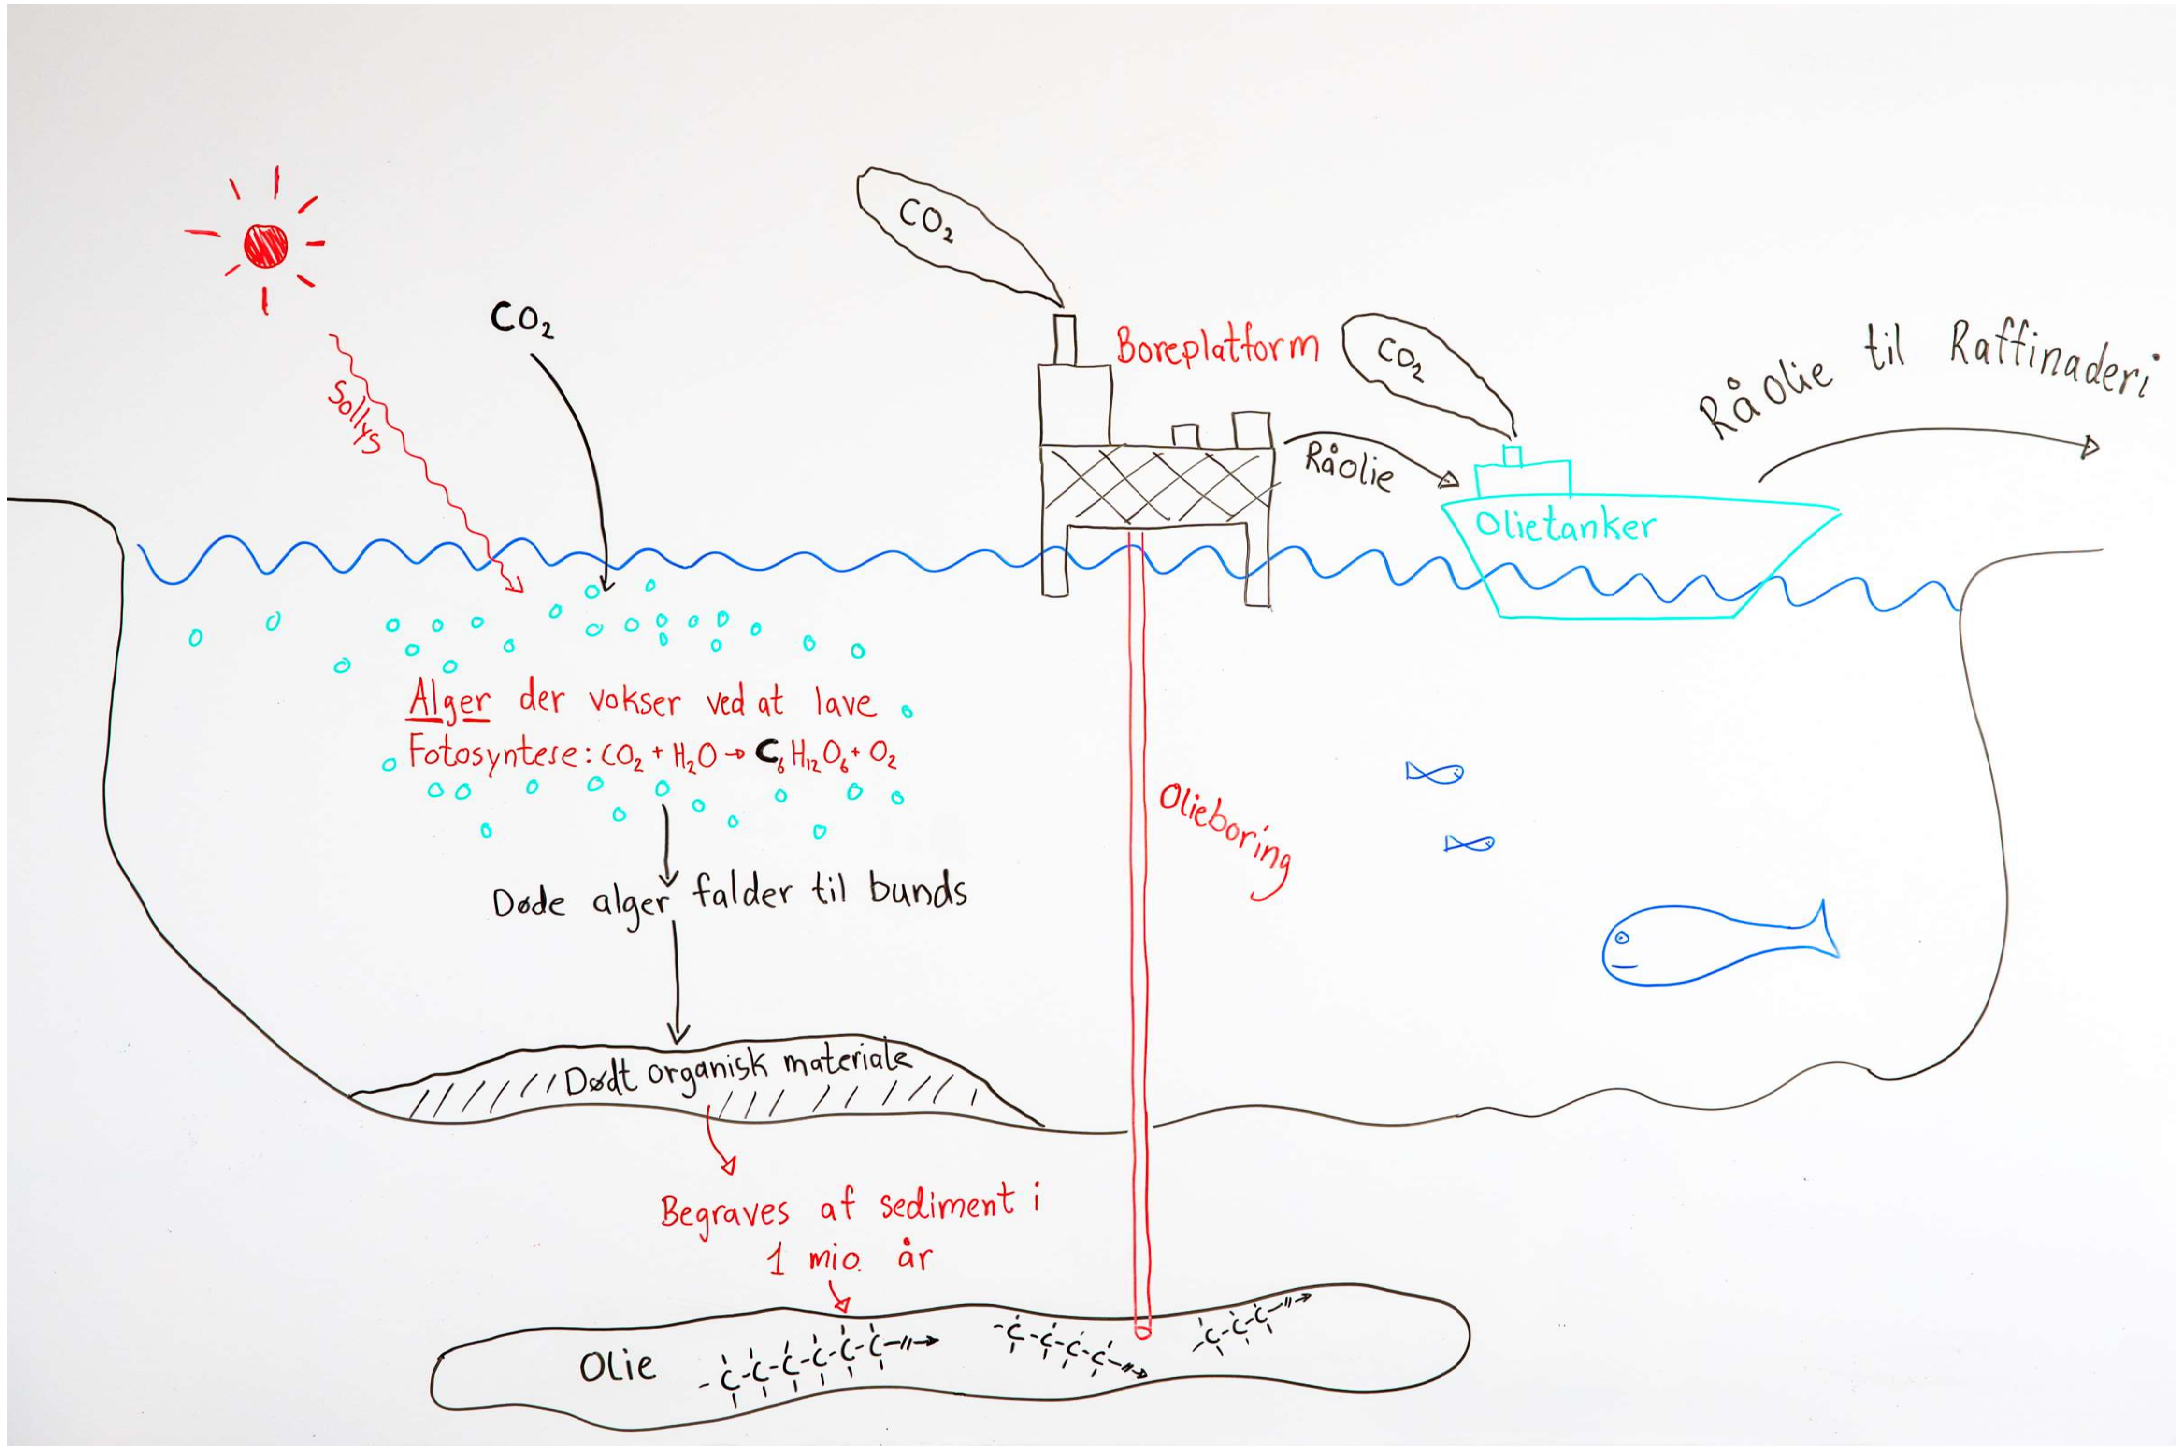 CO₂
CO₂
Boreplatform
CO₂
Råolie til Raffinaderi
Sollys
Råolie
Olietanker
Alger der vokser ved at lave
Fotosyntese: CO₂ + H₂O → C₆H₁₂O₆ + O₂
Olieboring
Døde alger falder til bunds
Dødt organisk materiale
Begraves af sediment i
1 mio. år
Olie
-C-C-C-C-C-C-//→
-C-C-C-C-//→
-C-C-C-//→